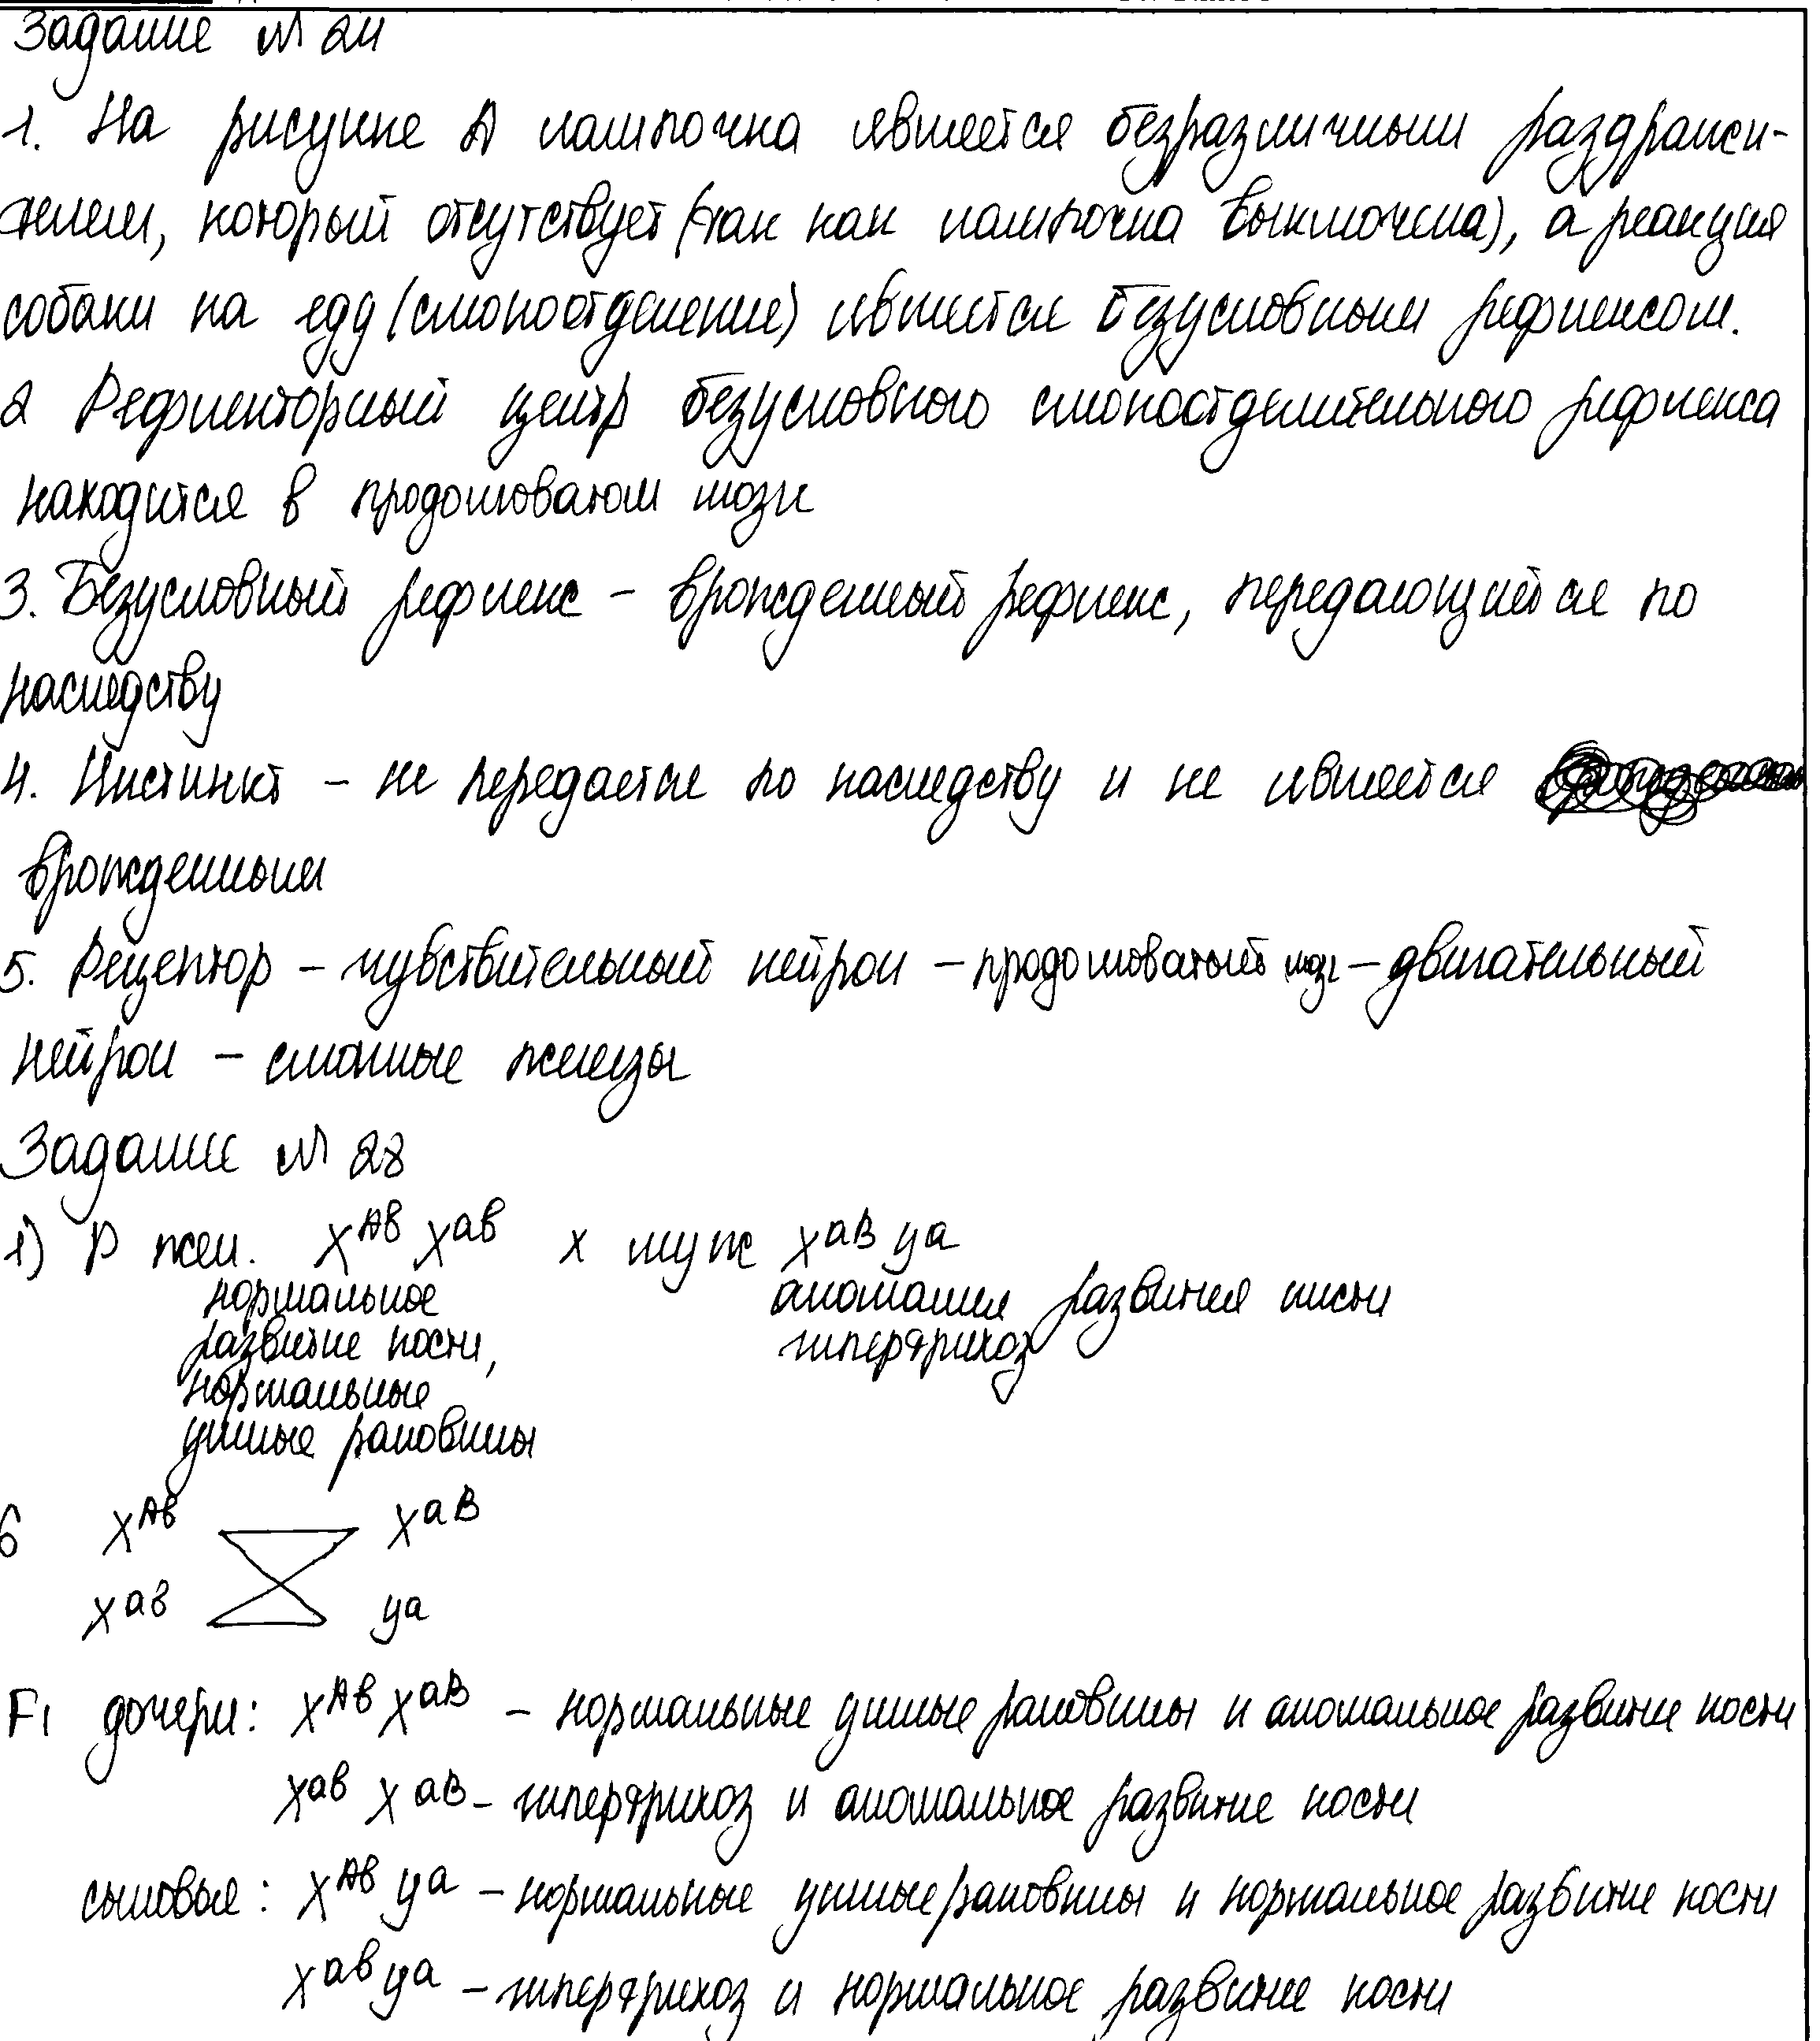 Задание №24
1. На рисунке А лампочка является безразличным раздражи-
телем, который отсутствует (так как лампочка выключена), а реакция
собаки на еду (слюноотделение) является безусловным рефлексом.
2 Рефлекторный центр безусловного слюноотделительного рефлекса
находится в продолговатом мозге
3. Безусловный рефлекс – врожденный рефлекс, передающийся по
наследству
4. Инстинкт – не передается по наследству и не является
врожденным
5. Рецептор – чувствительный нейрон – продолговатый мозг – двигательный
нейрон – слюнные железы
Задание №28
1) P жен. X^Aв X^ав х муж X^аВ Yа
нормальное аномалия развития кисти
развитие кости, гипертрихоз
нормальные
ушные раковины
G X^Aв X^аВ
X^ав Yа
F1 дочери: X^Aв X^аВ – нормальные ушные раковины и аномальное развитие кости
X^ав X^аВ – гипертрихоз и аномальное развитие кости
сыновья: X^Aв Yа – нормальные ушные раковины и нормальное развитие кости
X^ав Yа – гипертрихоз и нормальное развитие кости